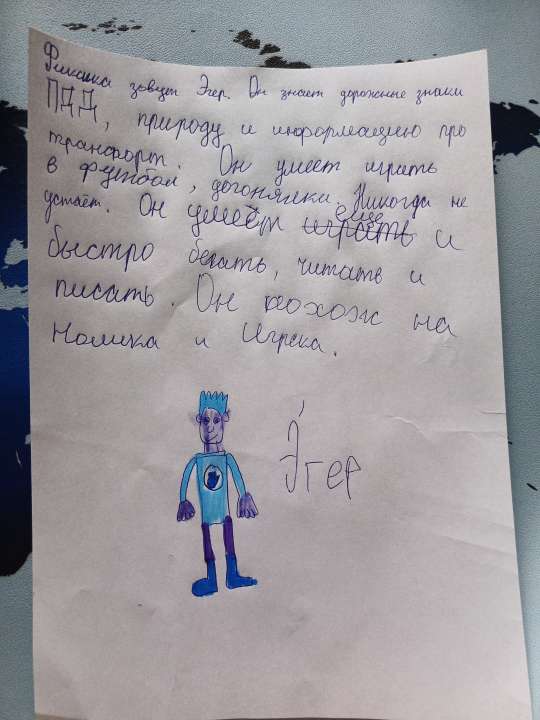 Фиксика зовут Эгер. Он знает дорожные знаки
ПДД, природу и информацию про
транфорт. Он умеет играть
в футбол, догонялки. Никогда не
устаёт. Он умеет ещё играть и
быстро бегать, читать и
писать. Он похож на
Нолика и Игрека.
Э́гер